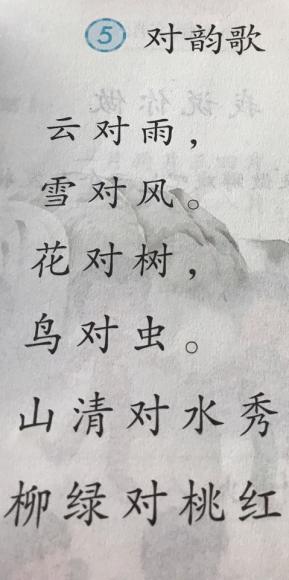 5 对韵歌
云对雨，
雪对风。
花对树，
鸟对虫。
山清对水秀
柳绿对桃红